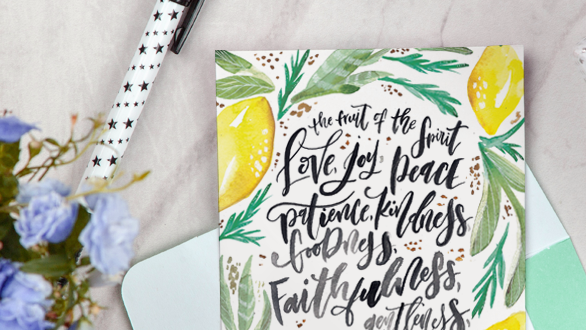 the fruit of the Spirit
Love, Joy, peace
patience, kindness
Goodness,
Faithfulness,
gentleness